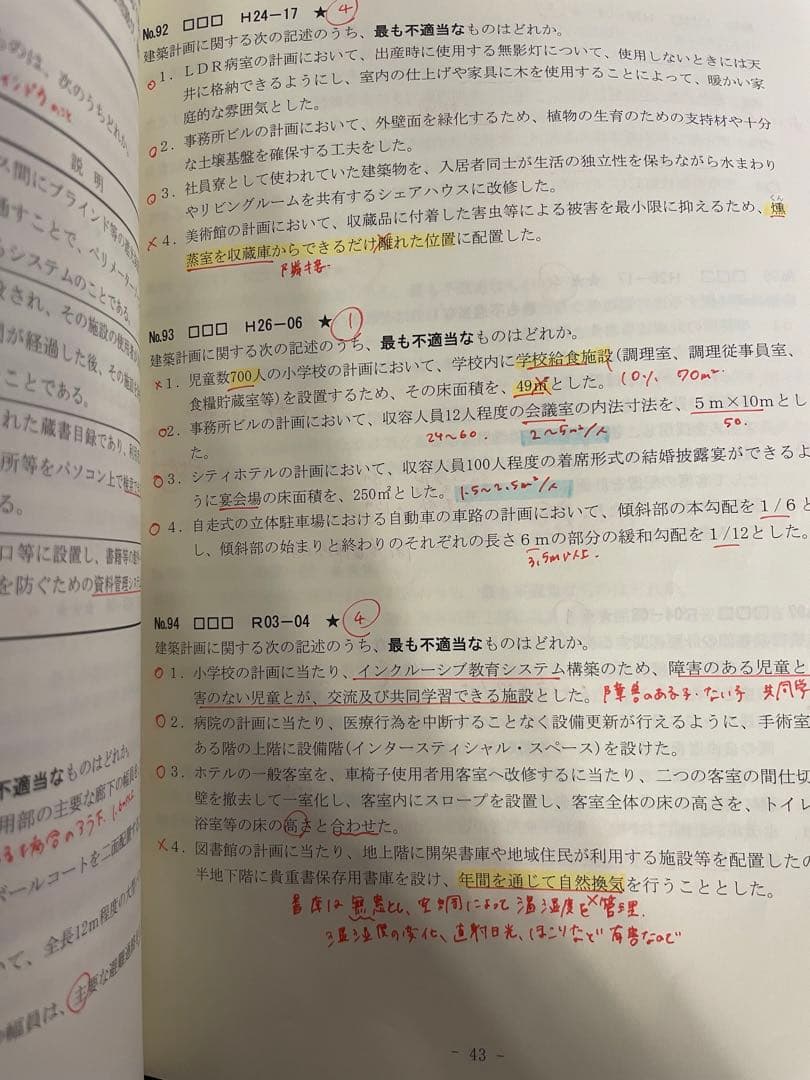 ものは、次のうちどれか。
説 明
ス間にブラインド等の
通すことで、ペリメーター
るシステムのことである。
され、その施設の使用者
が経過した後、その施設
ことである。
れた蔵書目録であり、利用
所等をパソコン上で検索
る。
口等に設置し、書籍等の
を防ぐための資料管理システ
不適当なものはどれか。
用部の主要な廊下の幅員を
ボールコートを二面配置
いて、全長12m程度の大型
幅員は、主要な避難通路
No.92 □□□ H24－17 ★ ④
建築計画に関する次の記述のうち、最も不適当なものはどれか。
○1．LDR病室の計画において、出産時に使用する無影灯について、使用しないときには天
井に格納できるようにし、室内の仕上げや家具に木を使用することによって、暖かい家
庭的な雰囲気とした。
○2．事務所ビルの計画において、外壁面を緑化するため、植物の生育のための支持材や十分
な土壌基盤を確保する工夫をした。
○3．社員寮として使われていた建築物を、入居者同士が生活の独立性を保ちながら水まわり
やリビングルームを共有するシェアハウスに改修した。
×4．美術館の計画において、収蔵品に付着した害虫等による被害を最小限に抑えるため、燻
くん
蒸室を収蔵庫からできるだけ離れた位置に配置した。
隣接
No.93 □□□ H26－06 ★ ①
建築計画に関する次の記述のうち、最も不適当なものはどれか。
×1．児童数700人の小学校の計画において、学校内に学校給食施設(調理室、調理従事員室、
食糧貯蔵室等)を設置するため、その床面積を、49㎡とした。 10% 70m²
○2．事務所ビルの計画において、収容人員12人程度の会議室の内法寸法を、5m×10mとし
た。 24～60. 2～5m²/人 50.
○3．シティホテルの計画において、収容人員100人程度の着席形式の結婚披露宴ができるよ
うに宴会場の床面積を、250㎡とした。 1.5～2.5m²/人
○4．自走式の立体駐車場における自動車の車路の計画において、傾斜部の本勾配を1/6と
し、傾斜部の始まりと終わりのそれぞれの長さ6mの部分の緩和勾配を1/12とした。
3.5m以上.
No.94 □□□ R03－04 ★ ④
建築計画に関する次の記述のうち、最も不適当なものはどれか。
○1．小学校の計画に当たり、インクルーシブ教育システム構築のため、障害のある児童と
害のない児童とが、交流及び共同学習できる施設とした。 障害のある子・ない子 共同学
○2．病院の計画に当たり、医療行為を中断することなく設備更新が行えるように、手術室
ある階の上階に設備階(インタースティシャル・スペース)を設けた。
○3．ホテルの一般客室を、車椅子使用者用客室へ改修するに当たり、二つの客室の間仕切
壁を撤去して一室化し、客室内にスロープを設置し、客室全体の床の高さを、トイレ
浴室等の床の高さと合わせた。
×4．図書館の計画に当たり、地上階に開架書庫や地域住民が利用する施設等を配置したの
半地下階に貴重書保存用書庫を設け、年間を通じて自然換気を行うこととした。
書庫は無窓とし、空調によって温湿度を管理.
温湿度の変化、直射日光、ほこりなど有害なので
- 43 -